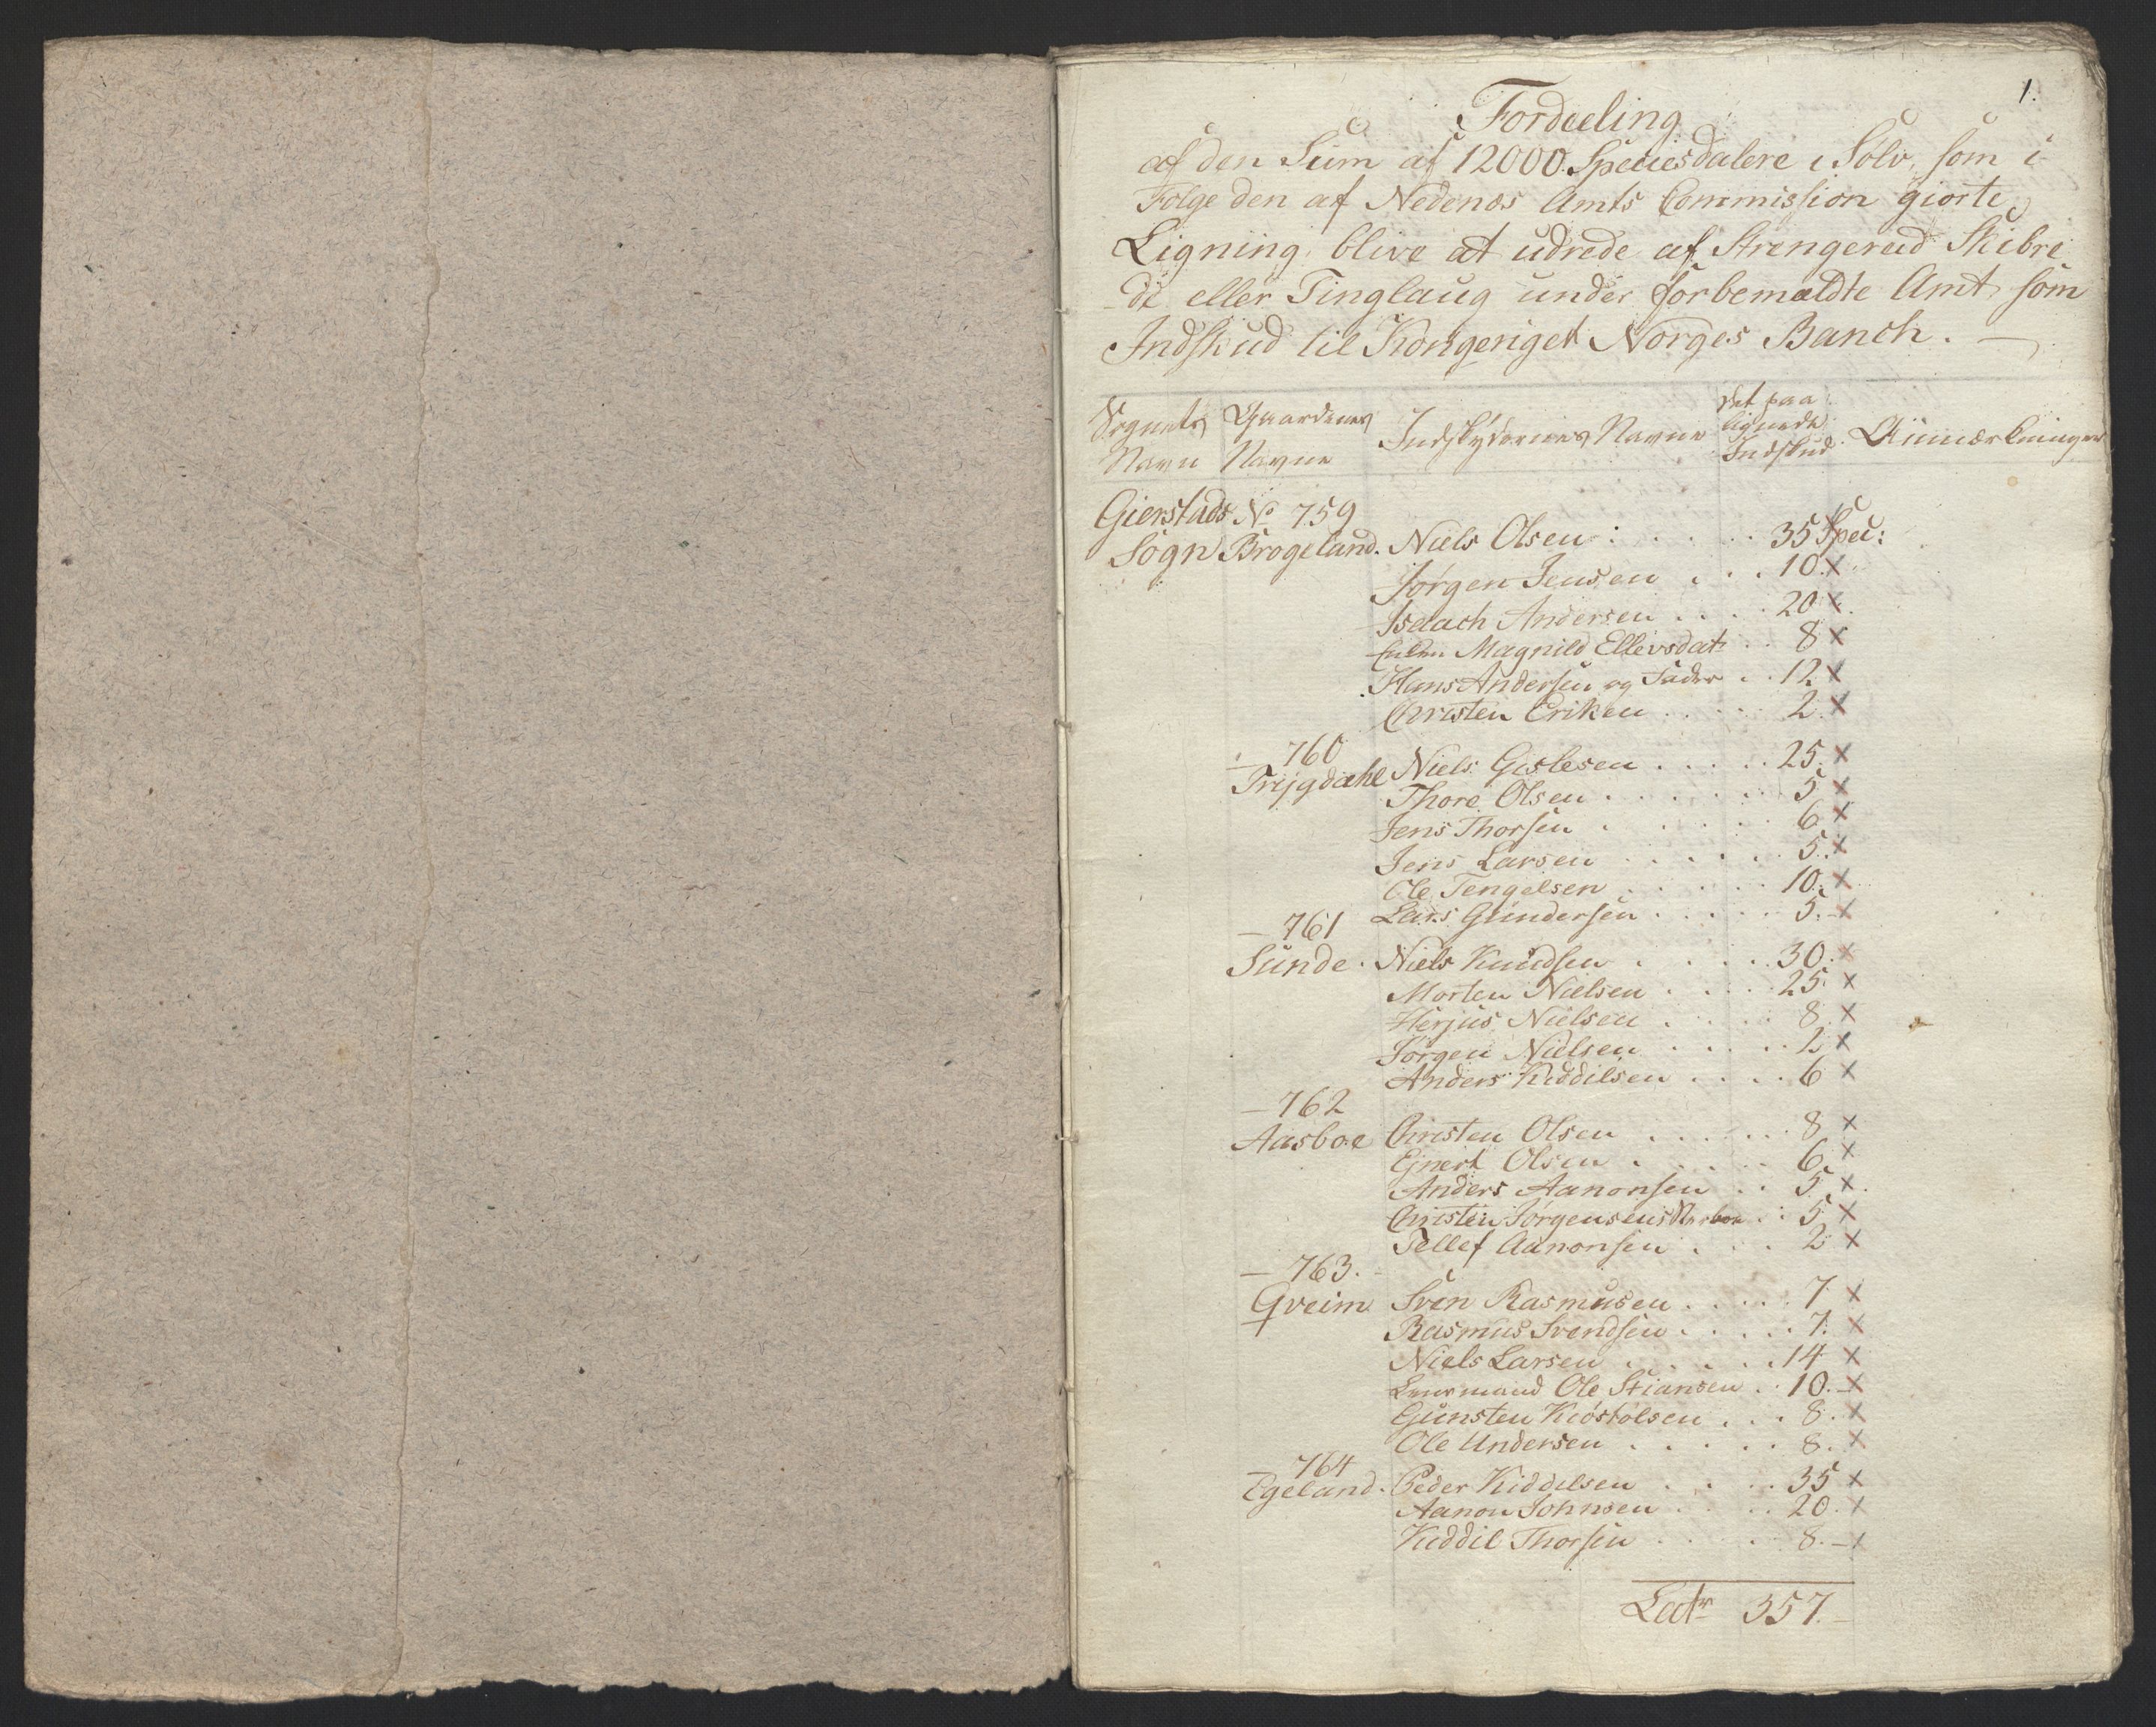 1.
Fordeeling
af den Sum af 12000 Speciesdalere i Sølv, som i
Følge den af Nedenæs Amts Commission giorte
Ligning, blive at udrede af Strengereid Skibre
de eller Tinglaug under forbemældte Amt som
Indskud til Kongeriget Norges Banch. —
Sognets Navn Gaardenes Navne Indskydernes Navne Det paa lignede Indskud Anmærkninger
Gierstads No 759
Sogn Brogeland. Niels Olsen . . . . 35 Spec:
Jørgen Jensen . . . 10. x
Isaach Andersen . . . 20 x.
Enken Magnild Ellevsdatr . . 8 x
Hans Andersen og Fader . . 12 x
Christen Eriken . . . . 2. x
— 760
Trygdæhl Niels Gislesen . . . . . 25. x
Thore Olsen . . . . . . 5 x
Jens Thorsen . . . . . 6 x
Jens Larsen . . . . . . 5. x
Ole Tengelsen . . . . . 10. x
— 761 Lars Gundersen . . . . . 5. x
Sunde. Niels Knudsen . . . . . 30. x
Morten Nielsen . . . . . 25. x
Herjus Nielsen . . . . . 8. x
Jørgen Nielsen . . . . . 2 x
Anders Kiddilsen . . . . 6 x
— 762
Aasboe Christen Olsen . . . . . . 8 x
Ejnert Olsen . . . . . 6. x
Anders Aanonsen . . 5 x.
Christen Jørgensens . . 5 x
Tellef Aanonsen . . . . 2 x
— 763.
Qveim Sven Rasmusen . . . . . 7 x
Rasmus Svendsen . . . . . 7. x
Niels Larsen . . . . . . 14 x
Lensmand Ole Stiansen . . 10. x
Gunsten Kiøstolsen . . . 8. x
Ole Andersen . . . . . . 8. x
764
Egeland. Peder Kiddelsen . . . . 35 x
Aanon Johnsen . . . . 20. x
Kiddil Thorsen . . . . 8. x
Latr 357.